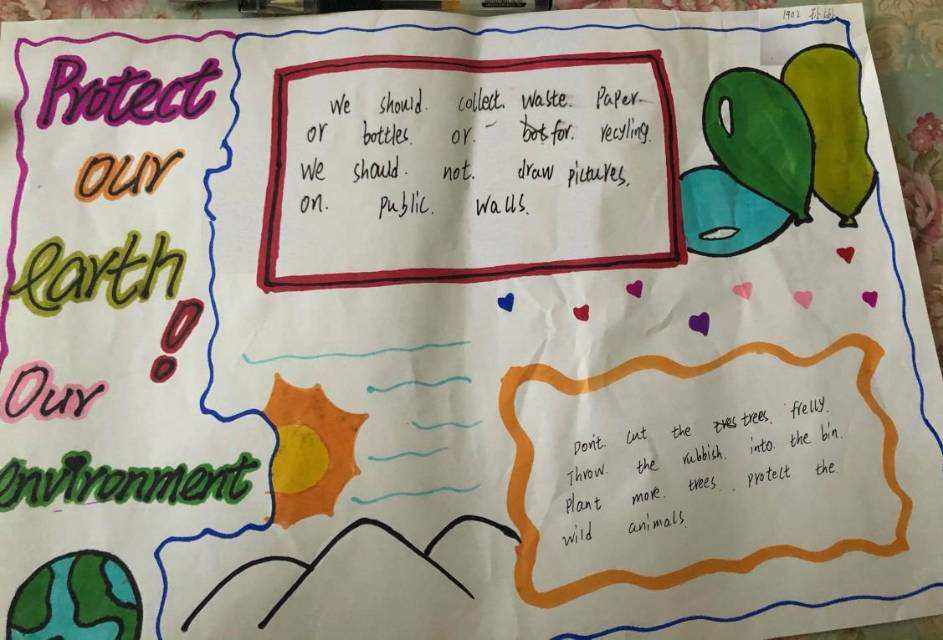 Protect
our
earth!
Our
environment
We should. collect. waste. Paper
or bottles. or. for. recyling.
We should. not. draw pictures.
on. public. walls.
Don't. cut the trees. frelly.
Throw. the rubbish. into. the bin.
Plant more. trees. protect the
wild animals.
1902